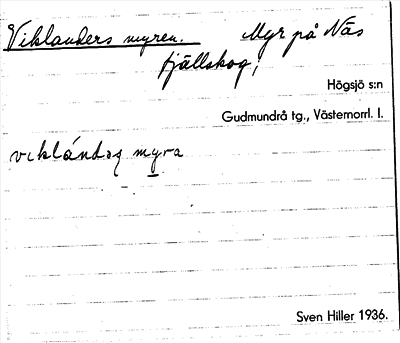 Viklanders myren. Myr på Näs
fjällskog,
Högsjö s:n
Gudmundrå tg., Västernorrl. l.
viklándəʂ myra
Sven Hiller 1936.